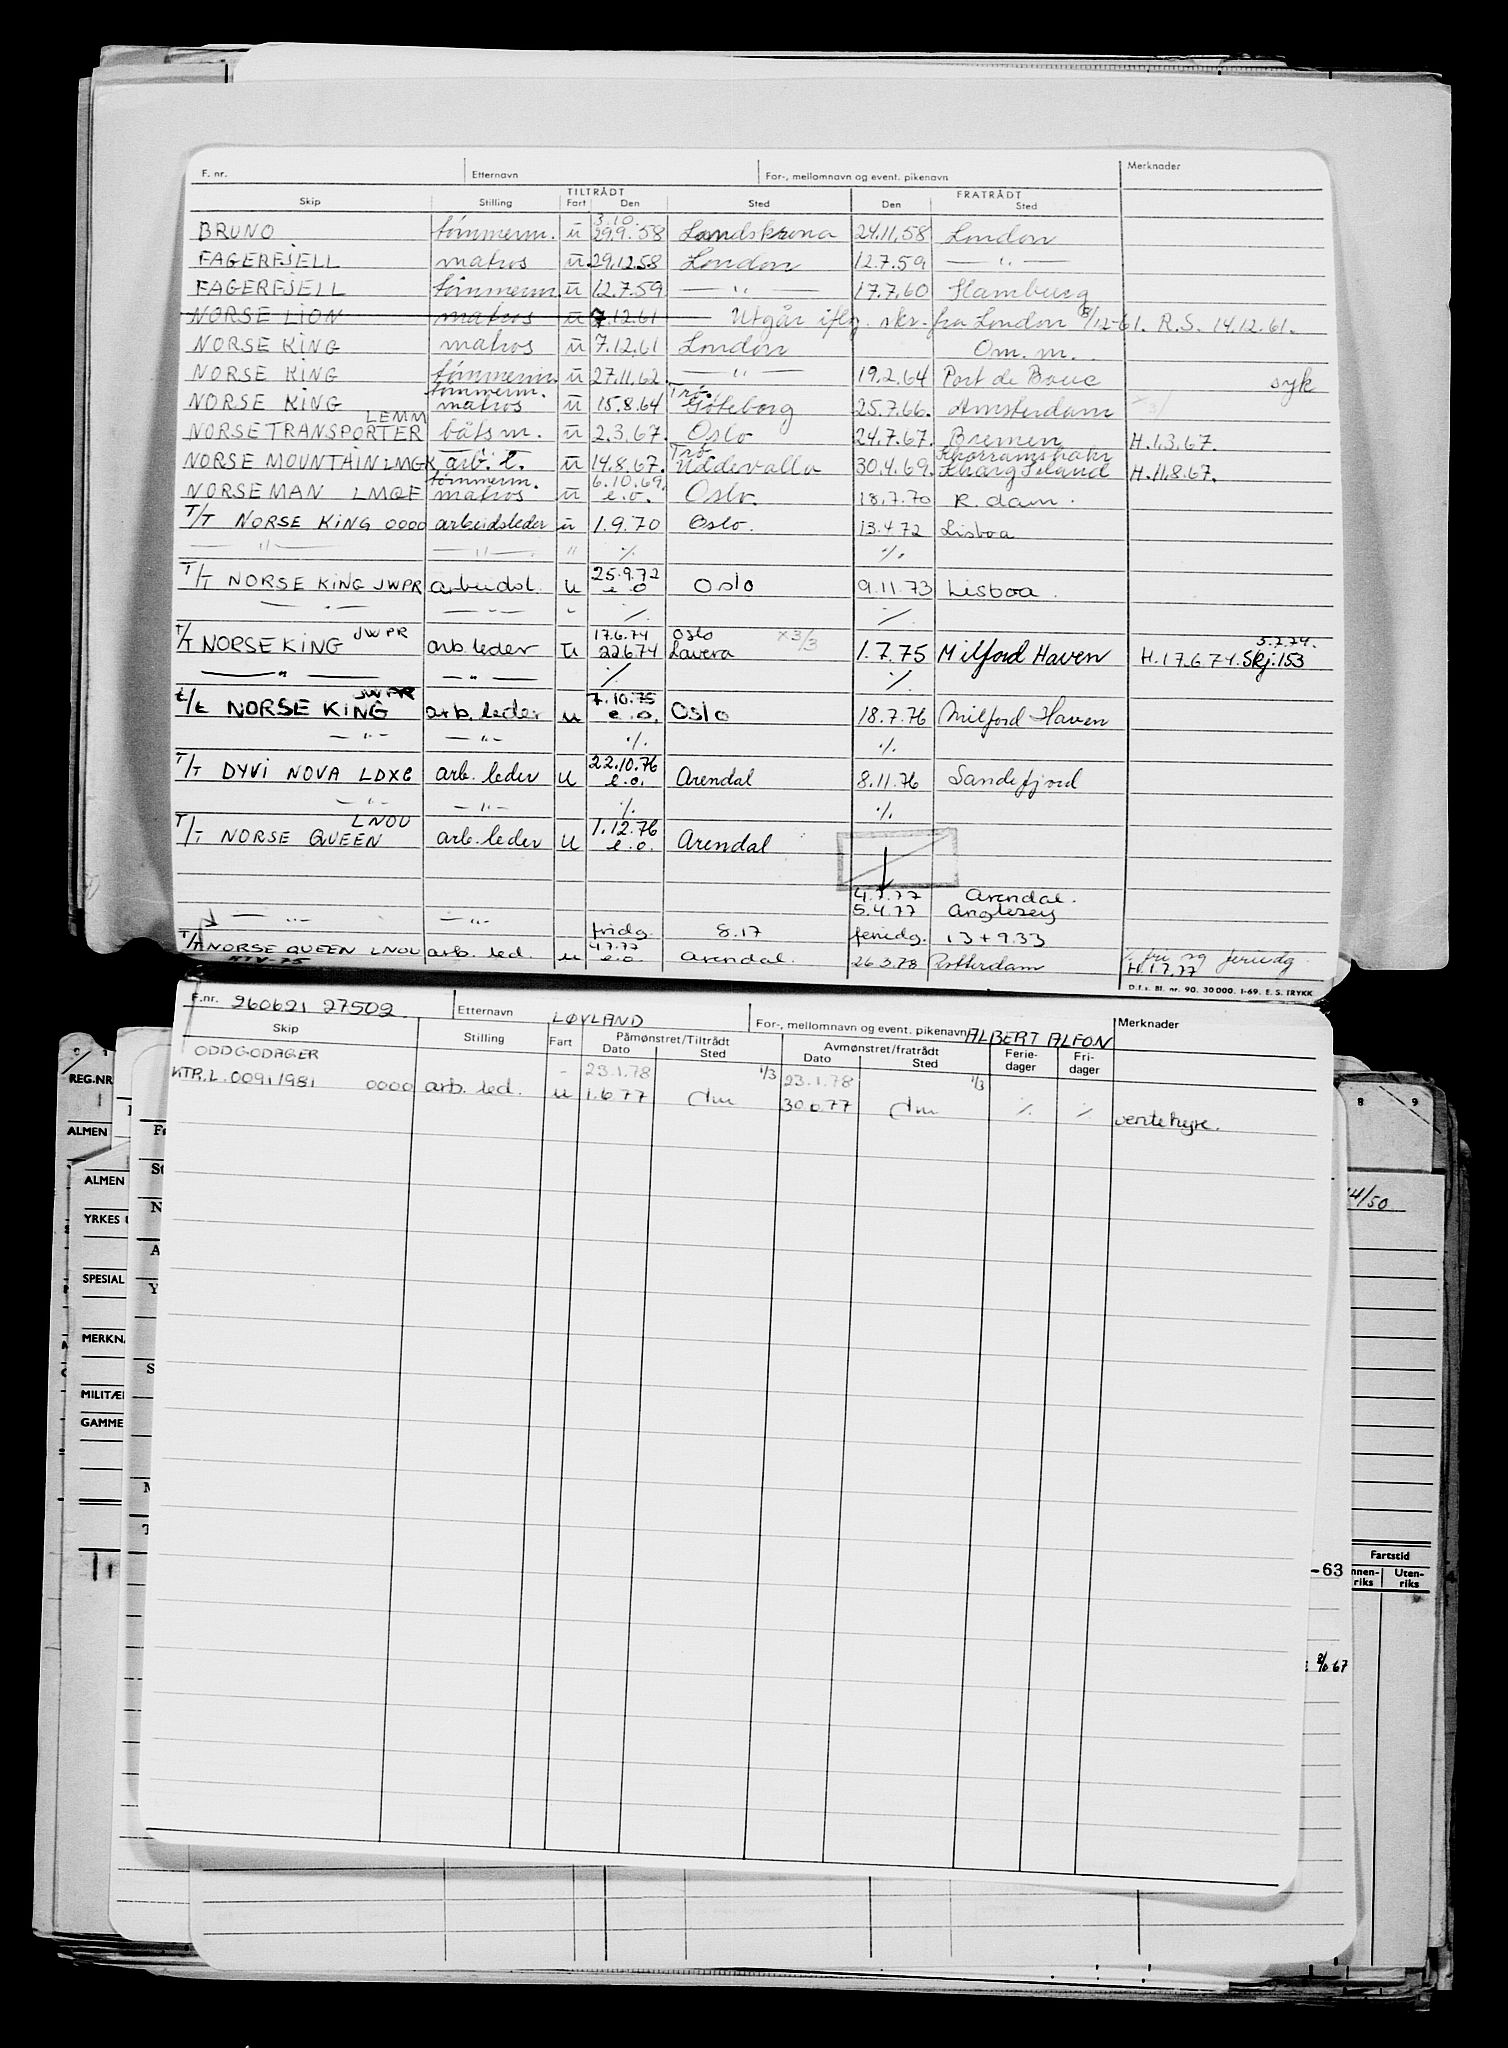 F. nr. Etternavn For-, mellomnavn og event. pikenavn Merknader
TILTRÅDT FRATRÅDT
Skip Stilling Fart Den Sted Den Sted
3.10.
BRUNO tömmerm. u 29.9.58 Landskrona 24.11.58 London
FAGERFJELL matros u 29.12.58 London 12.7.59 — " —
FAGERFJELL tömmerm. u 12.7.59 — " — 17.7.60 Hamburg
NORSE LION matros u 7.12.61 — Utgår iflg. skr. fra London 8/12-61. R.S. 14.12.61.
NORSE KING matros u 7.12.61 London Om. m.
NORSE KING tömmerm. u 27.11.62 — " — 19.2.64 Port de Bouc syk
tömmerm. Trå.
NORSE KING matros u 15.8.64 Göteborg 25.7.66. Amsterdam
LEMM
NORSE TRANSPORTER båtsm. u 2.3.67. Oslo 24.7.67. Bremen H.1.3.67.
Trå. Khorramshahr
NORSE MOUNTAIN LMGK arb. l. u 14.8.67. Uddevalla 30.4.69. Kharg Island H.11.8.67.
tömmerm. 6.10.69.
NORSEMAN LMQF matros u e.o. Oslo. 18.7.70 R.dam.
T/T NORSE KING 0000 arbeidsleder u 1.9.70 Oslo. 13.4.72 Lisboa
— " — — " — " ./. ./.
25.9.72
T/T NORSE KING JWPR arbeidsl. u e.o Oslo 9.11.73 Lisboa.
— " — — " — " ./. ./.
JWPR 17.6.74 Oslo x3/3 5.7.74.
T/T NORSE KING arb. leder u 22.6.74 Lavera 1.7.75 Milford Haven H.17.6.74. Skj.153
— " — — " — ./. ./.
JWPR 7.10.75
t/t NORSE KING arb. leder u e.o. Oslo 18.7.76 Milford Haven
— " — — " — ./. ./.
22.10.76
T/T DYVI NOVA LDXG arb. leder u e.o. Arendal 8.11.76 Sandefjord
— " — — " — ./. ./.
LNOU 1.12.76
T/T NORSE QUEEN arb. leder u e.o. Arendal
4.7.77 Arendal.
5.4.77 Anglesey
— " — — " — fridg. 8.17 feriedg. 13+9.33
4.7.77 ./. fri og feriedg.
T/T NORSE QUEEN LNOU arb. led. u e.o. Arendal. 26.3.78 Rotterdam H.1.7.77
KTV-75
D.f.s. Bl. nr. 90. 30 000. 1-69. E. S. TRYKK
F.nr. 260621 27502 Etternavn LØVLAND For-, mellomnavn og event. pikenavn ALBERT ALFON Merknader
Skip Stilling Fart Påmønstret/Tiltrådt Avmønstret/fratrådt Ferie- Fri-
Dato Sted Dato Sted dager dager
ODDGODAGER - 23.1.78 1/3 23.1.78 1/3
KTR.L. 0091/1981 0000 arb. led. u 1.6.77 dm 30.6.77 dm ./. ./. ventehyre.
REG.NR
ALMEN
ALMEN
YRKES
SPESIAL
MERKNA
MILITÆ
GAMME
8 9
14/50
-63
Fartstid
Innen-riks Uten-riks